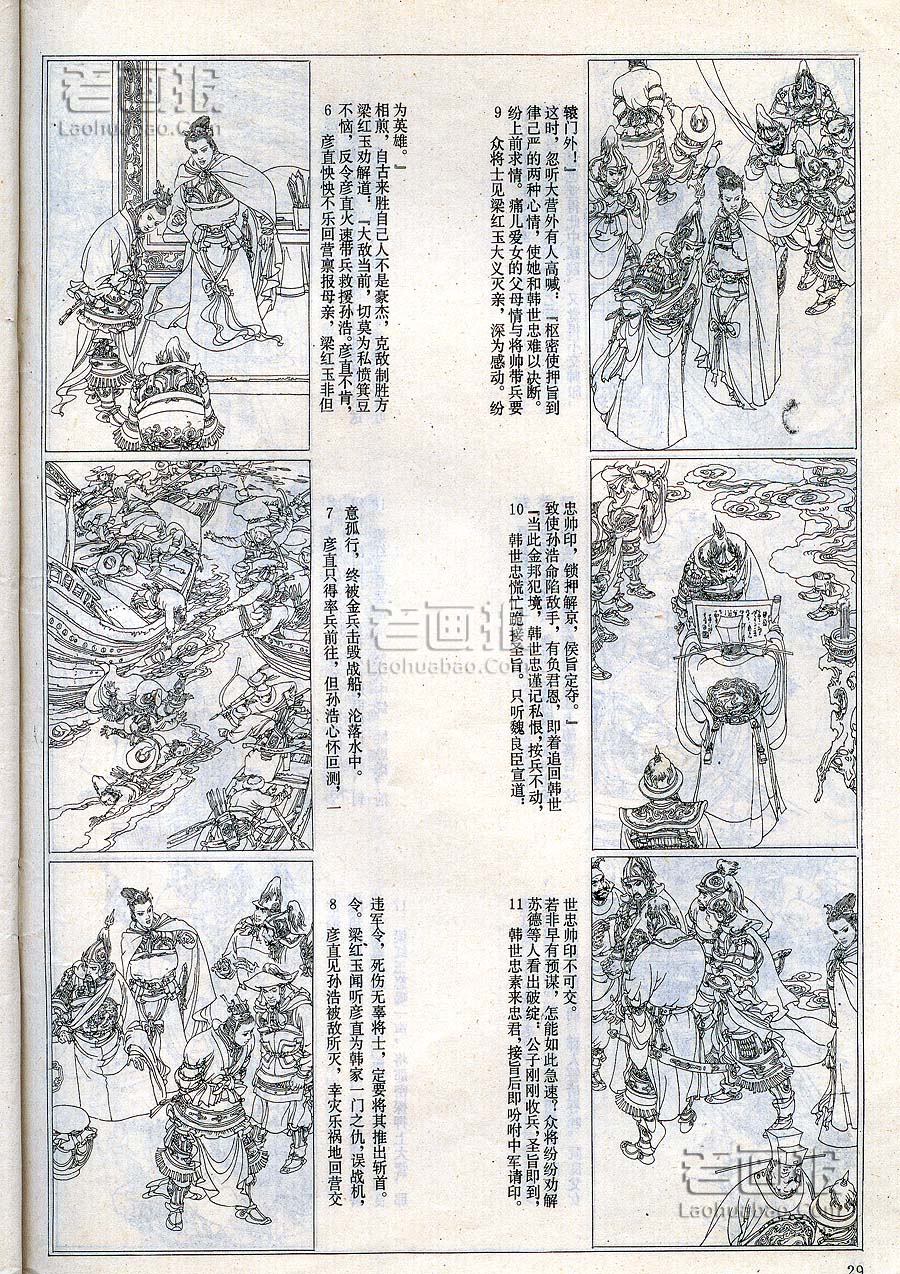 老画报
Laohuabao.Com
6 彦直怏怏不乐回营禀报母亲，梁红玉非但
不恼，反令彦直火速带兵救援孙浩。彦直不肯，
梁红玉劝解道：『大敌当前，切莫为私愤箕豆
相煎，自古来胜自己人不是豪杰，克敌制胜方
为英雄。』
7 彦直只得率兵前往，但孙浩心怀叵测，一
意孤行，终被金兵击毁战船，沦落水中。
8 彦直见孙浩被敌所灭，幸灾乐祸地回营交
令。梁红玉闻听彦直为韩家一门之仇，误战机，
违军令，死伤无辜将士，定要将其推出斩首。
老画报
Laohuabao.Com
9 众将士见梁红玉大义灭亲，深为感动。纷
纷上前求情。痛儿爱女的父母情与将帅带兵要
律己严的两种心情，使她和韩世忠难以决断。
这时，忽听大营外有人高喊：『枢密使押旨到
辕门外！』
10 韩世忠慌忙跪接圣旨。只听魏良臣宣道：
『当此金邦犯境，韩世忠谨记私恨，按兵不动，
致使孙浩命陷敌手，有负君恩，即着追回韩世
忠帅印，锁押解京，侯旨定夺。』
11 韩世忠素来忠君，接旨后即吩咐中军请印。
苏德等人看出破绽：公子刚刚收兵，圣旨即到，
若非早有预谋，怎能如此急速？众将纷纷劝解
世忠帅印不可交。
老画报
Laohuabao.Com
29